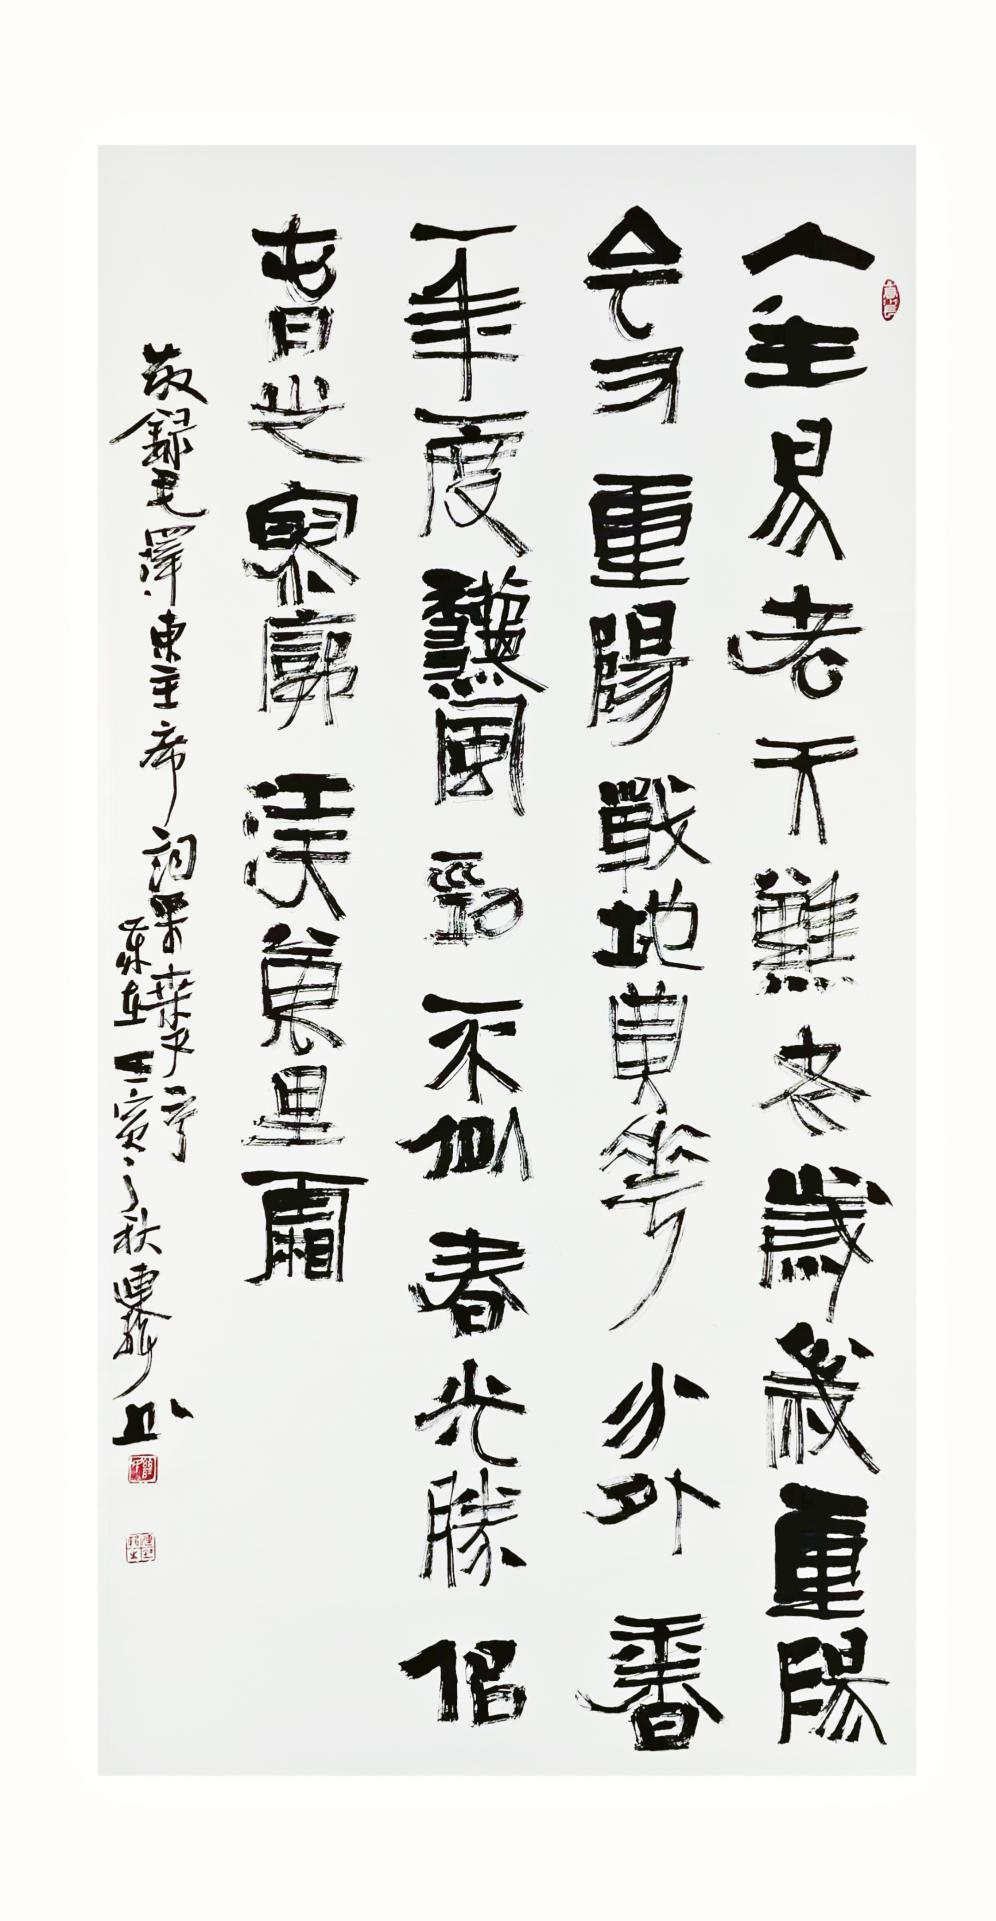 人生易老天難老歲歲重陽
今又重陽戰地黃花分外香
一年一度龝風勁不似春光勝佀
旾光寥廓江天萬里霜
敬録毛澤東主席詞采桑子
歲在壬寅之秋